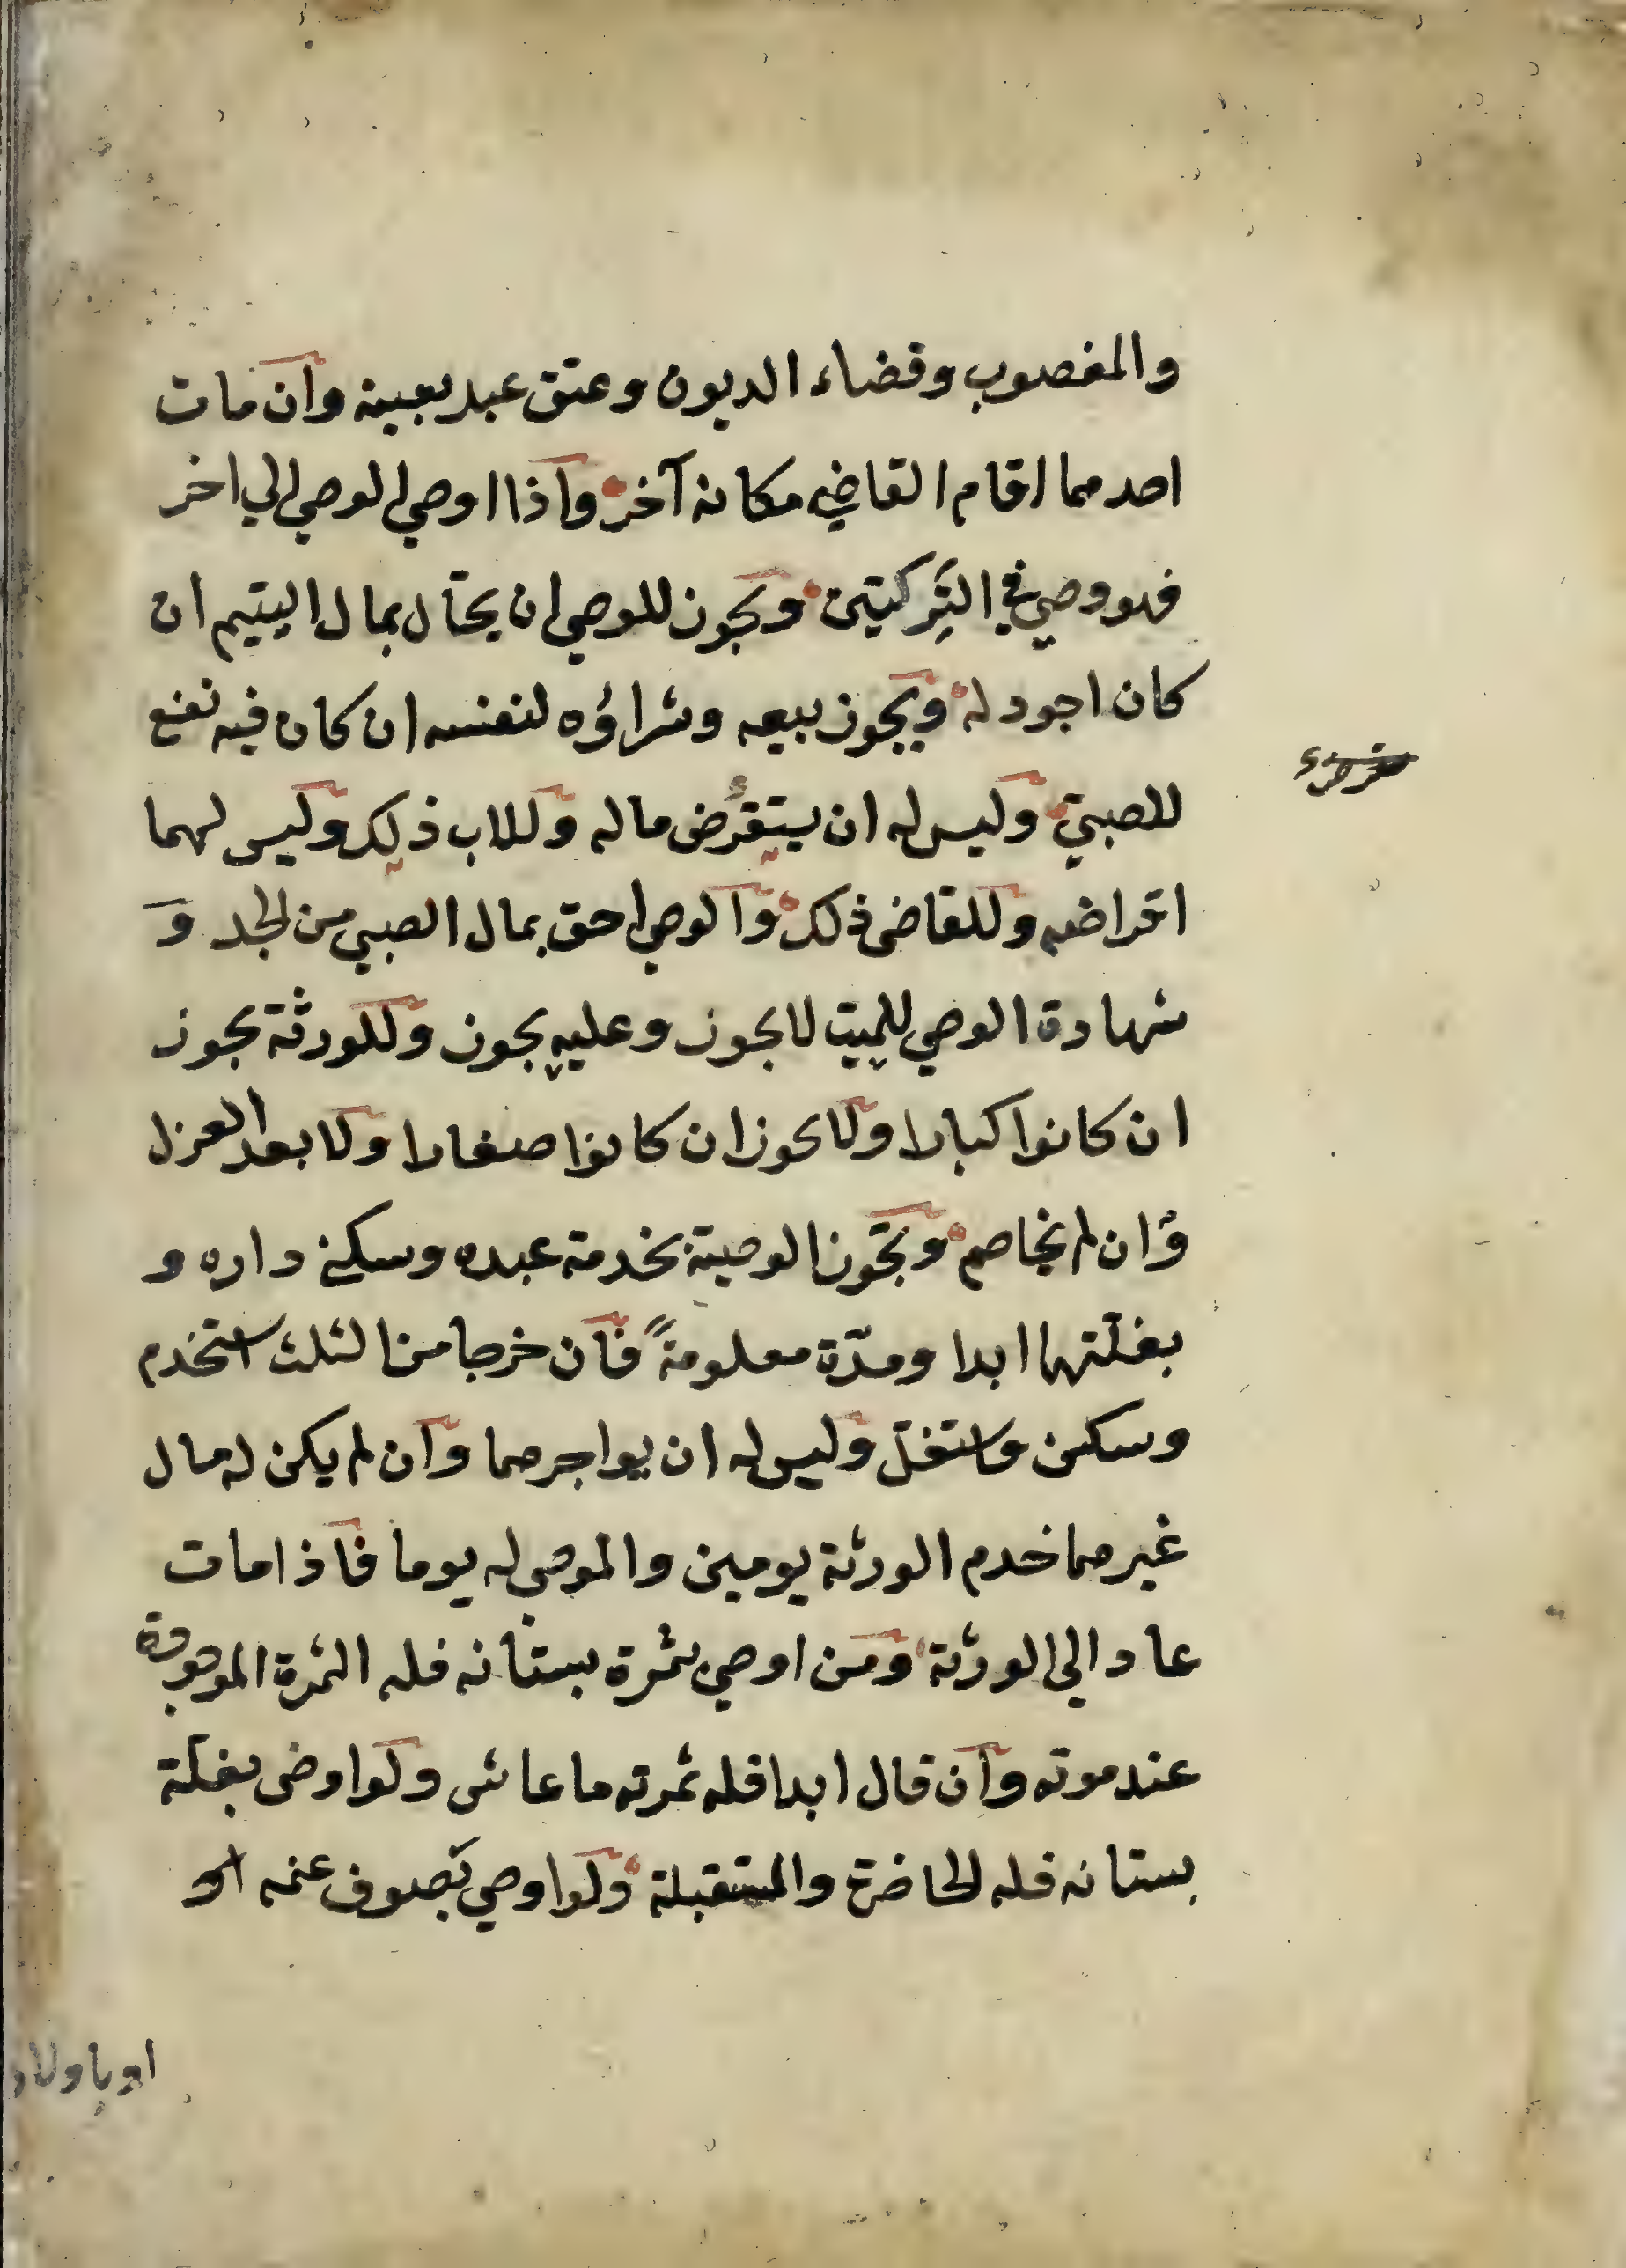 والمغصوب وقضاء الديون وعتق عبد بعينه وان مات
احدهما اقام القاضي مكانه آخر واذا اوصي الوصي الي اخر
فهو وصي في التركتين ويجوز للوصي ان يحتال بمال اليتيم ان
كان اجود له ويجوز بيعه وشراؤه لنفسه ان كان فيه نفع
للصبي وليس له ان يستقرض ماله وللاب ذلك وليس لهما
اقراضه وللقاضى ذلك والوصي احق بمال الصبي من الجد و
شهادة الوصي للميت لا يجوز وعليه يجوز وللورثة يجوز
ان كانوا كبارا ولا يجوز ان كانوا صغارا ولا بعد العزل
وان لم يخاصم ويجوز الوصية بخدمة عبده وسكني داره و
بغلتهما ابدا ومدّة معلومةً فان خرجا من الثلث استخدم
وسكن واستغلّ وليس له ان يواجرهما وان لم يكن له مال
غيرهما خدم الورثة يومين والموصى له يوما فاذا مات
عاد الي الورثة ومن اوصي بثمرة بستانه فله الثمرة الموجودة
عند موته وان قال ابدا فله ثمرته ما عاش ولو اوصى بغلّة
بستانه فله الحاضرة والمستقبلة ولو اوصي بصوف غنمه او
او باولاد